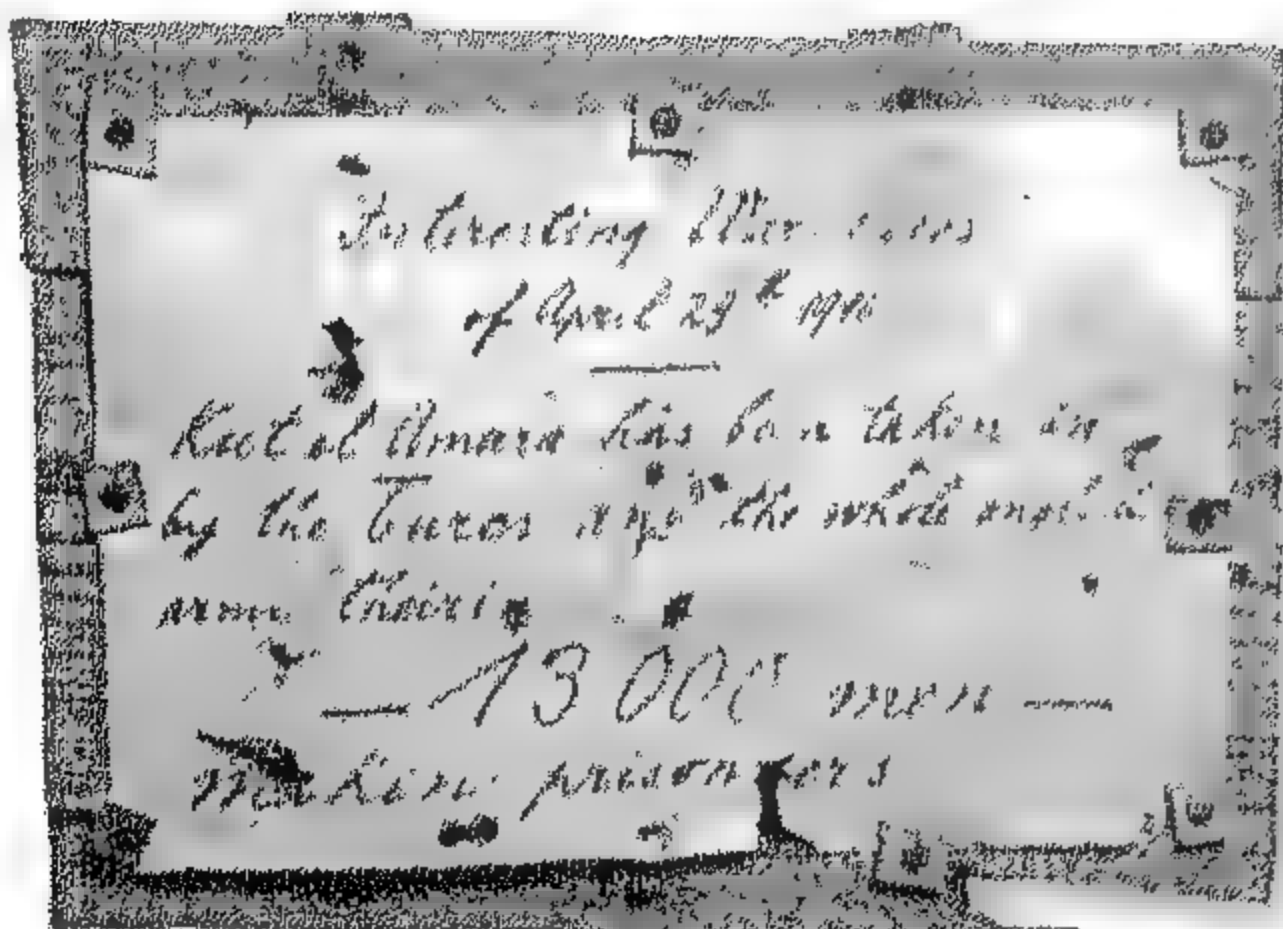 Interesting War news
of April 29th 1916
Kut el Amara has been taken in
by the Turcs and the whole
men therein
— 13000 men —
prisoners